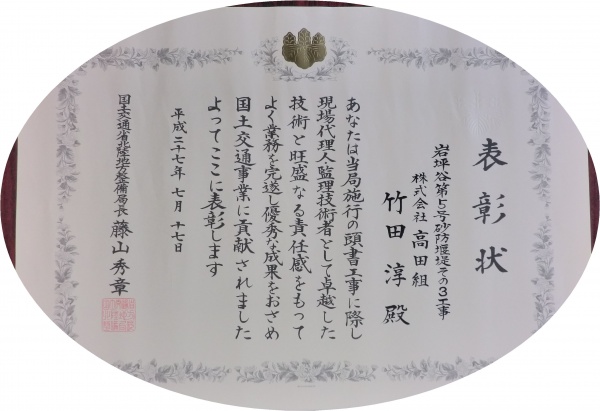 表彰状
岩坪谷第5号砂防堰堤その3工事
株式会社高田組
竹田淳殿
あなたは当局施行の頭書工事に際し
現場代理人監理技術者として卓越した
技術と旺盛なる責任感をもって
よく業務を完遂し優秀な成果をおさめ
国土交通事業に貢献されました
よってここに表彰します
平成二十七年七月十七日
国土交通省北陸地方整備局長 藤山秀章